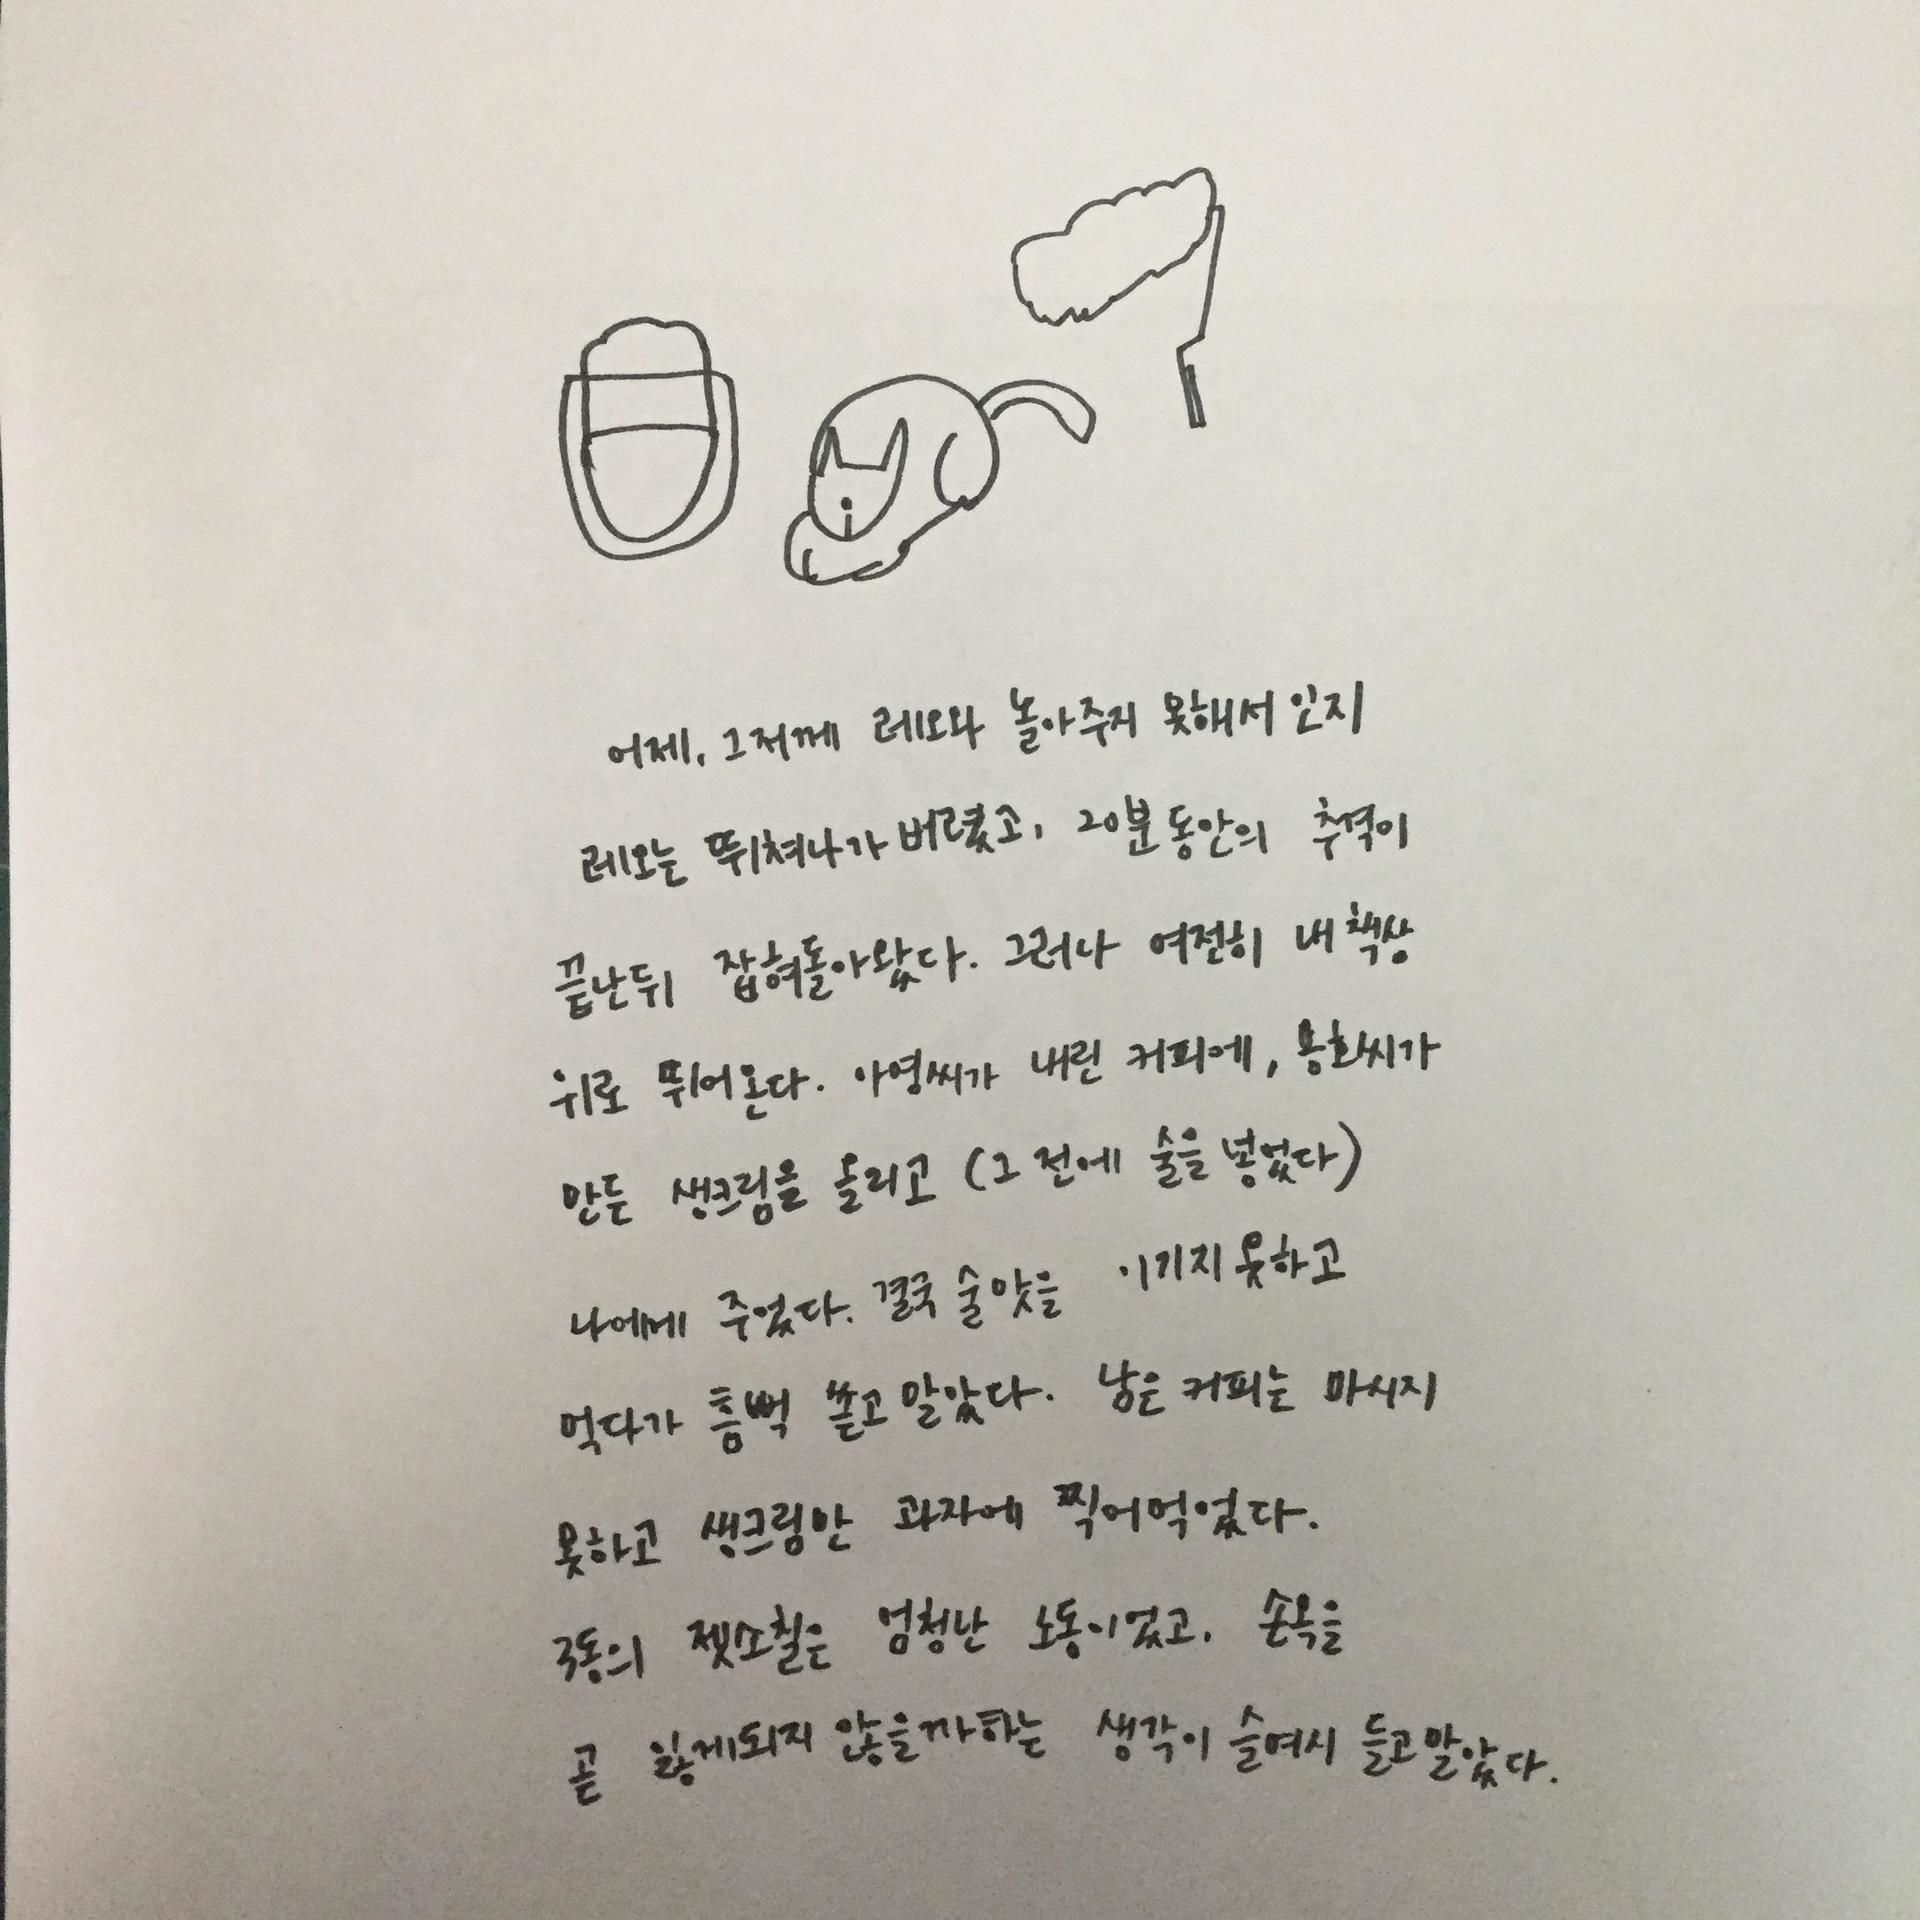 어제, 그저께 레오와 놀아주지 못해서 인지
레오는 뛰쳐나가 버렸고, 20분 동안의 추격이
끝난뒤 잡혀돌아왔다. 그러나 여전히 내 책상
위로 뛰어온다. 아영씨가 내린 커피에, 용화씨가
만든 생크림을 올리고 (그 전에 술을 넣었다)
나에게 주었다. 결국 술맛을 이기지 못하고
먹다가 흠뻑 쏟고 말았다. 남은 커피는 마시지
못하고 생크림만 과자에 찍어먹었다.
3동의 젯소칠은 엄청난 노동이었고, 손목을
곧 잃게되지 않을까하는 생각이 슬며시 들고말았다.